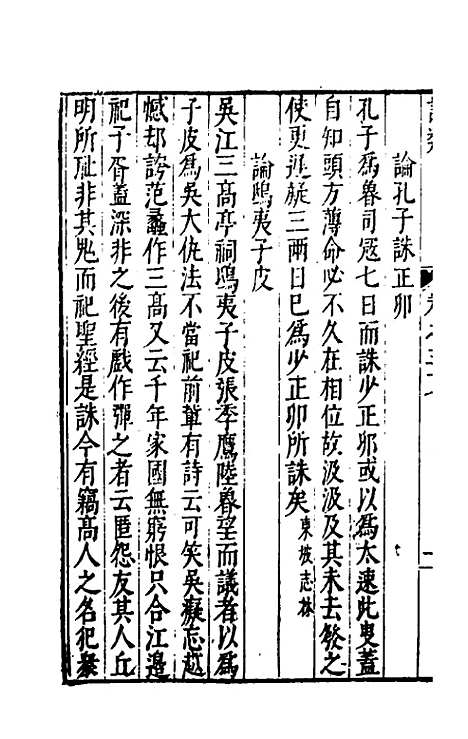 論孔子誅正卯
孔子為魯司冦七日而誅少正卯或以為太速此叟蓋
自知頭方薄命必不久在相位故汲汲及其未去發之
使更遲疑三兩日已為少正卯所誅矣東坡志林
論鴟夷子皮
吳江三髙亭祠鴟夷子皮張季鷹陸魯望而議者以為
子皮為吳大仇法不當祀前軰有詩云可笑吳癡忘越
憾却誇范蠡作三髙又云千年家國無窮恨只合江邉
祀子胥蓋深非之後有戲作彈之者云匿怨友其人丘
明所耻非其鬼而祀聖經是誅今有竊髙人之名犯衆